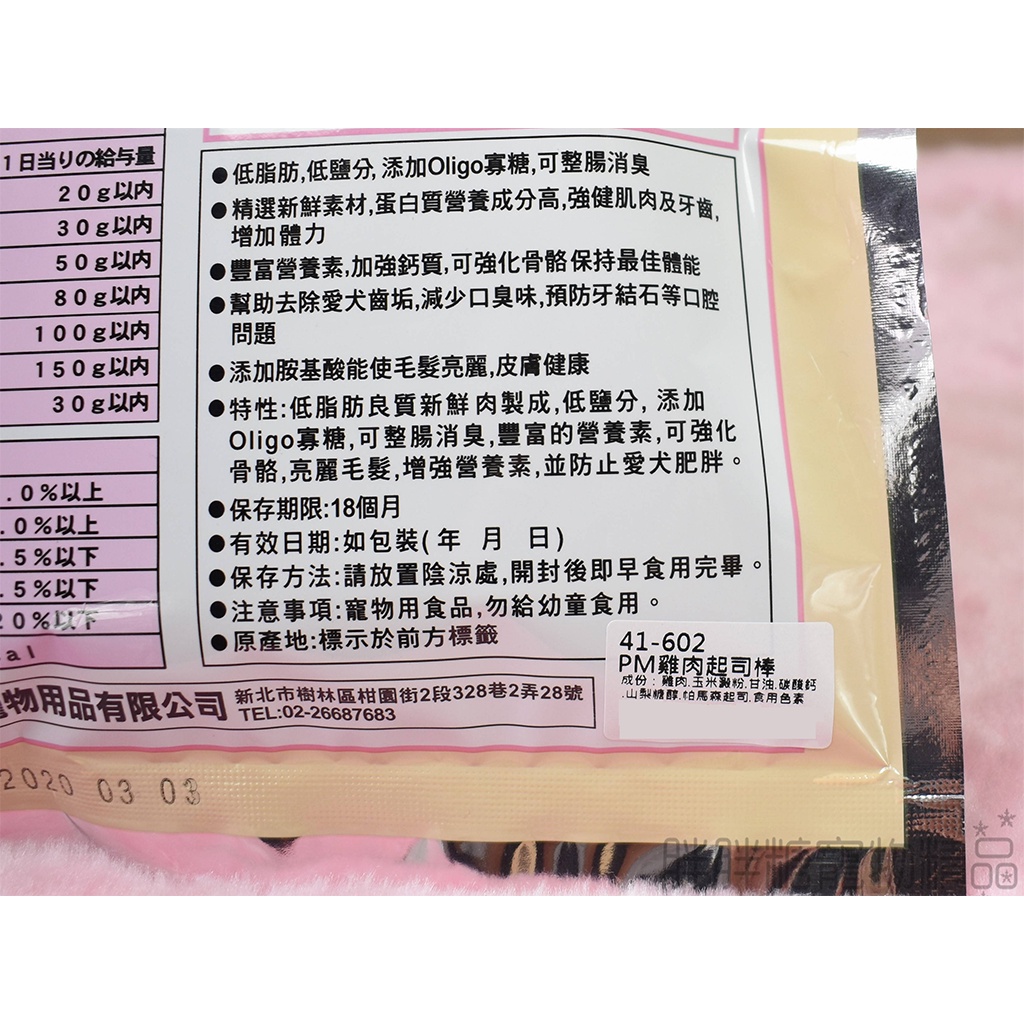 1日当りの給与量
20g以内
30g以内
50g以内
80g以内
100g以内
150g以内
30g以内
.0%以上
.0%以上
.5%以下
.5%以下
20%以下
al
●低脂肪,低鹽分,添加Oligo寡糖,可整腸消臭
●精選新鮮素材,蛋白質營養成分高,強健肌肉及牙齒,
增加體力
●豐富營養素,加強鈣質,可強化骨骼保持最佳體能
●幫助去除愛犬齒垢,減少口臭味,預防牙結石等口腔
問題
●添加胺基酸能使毛髮亮麗,皮膚健康
●特性:低脂肪良質新鮮肉製成,低鹽分,添加
Oligo寡糖,可整腸消臭,豐富的營養素,可強化
骨骼,亮麗毛髮,增強營養素,並防止愛犬肥胖。
●保存期限:18個月
●有效日期:如包裝(年 月 日)
●保存方法:請放置陰涼處,開封後即早食用完畢。
●注意事項:寵物用食品,勿給幼童食用。
●原產地:標示於前方標籤
41-602
PM雞肉起司棒
成份：雞肉.玉米澱粉.甘油.碳酸鈣
.山梨糖醇.帕馬森起司.食用色素
物用品有限公司
新北市樹林區柑園街2段328巷2弄28號
TEL:02-26687683
2020 03 03